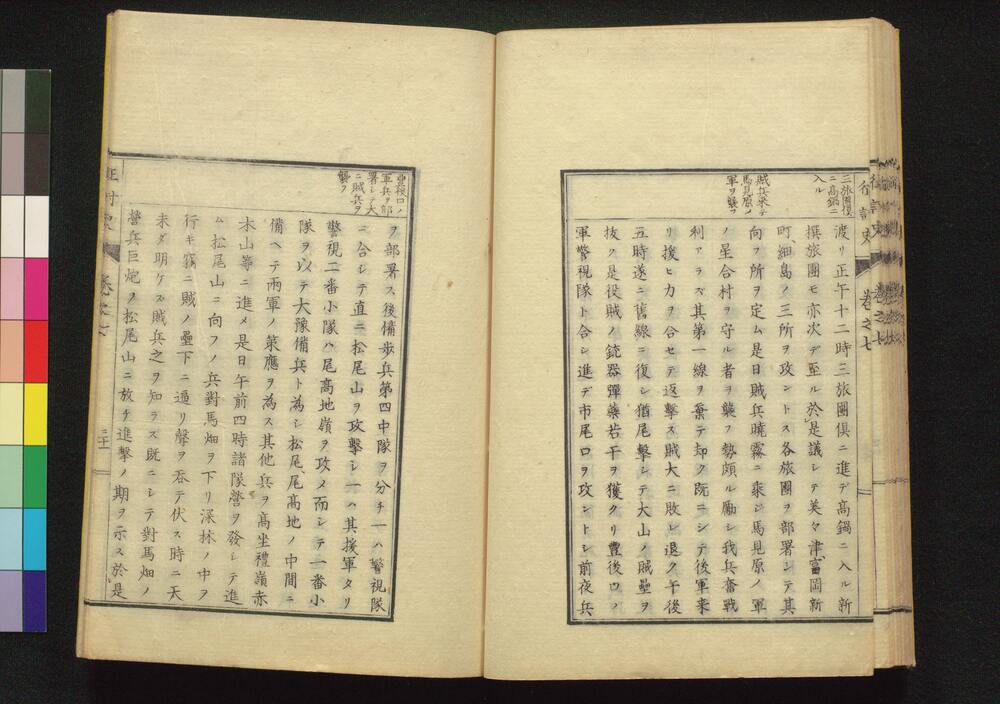 三旅團倶
ニ高鍋ニ
入ル
渡リ正午十二時三旅團倶ニ進デ高鍋ニ入ル新
撰旅團モ亦次デ至ル於是議シテ美々津富岡新
町細島ノ三所ヲ攻ントス各旅團ヲ部署シテ其
向フ所ヲ定ム是日賊兵曉霧ニ乘ジ馬見原ノ軍
賊兵來テ
馬見原ノ
軍ヲ襲フ
ノ星合村ヲ守ル者ヲ襲フ勢頗ル勵シ我兵奮戰
利アラズ其第一線ヲ棄テ却ク既ニシテ後軍來
リ援ヒカヲ合セテ返擊ス賊大ニ敗レ退ク午後
五時遂ニ舊線ニ復シ猶尾擊シテ大山ノ賊壘ヲ
拔ク是役賊ノ銃器彈藥若干ヲ獲タリ豐後口ノ
軍警視隊ト合シ進デ市尾口ヲ攻ントシ前夜兵
征討史
卷之七
豐後口ノ
軍兵ヲ部
署シテ大
ニ賊兵ヲ
襲フ
ヲ部署ス後備步兵第四中隊ヲ分チ一ハ警視隊
ニ合シテ直ニ松尾山ヲ攻擊シ一ハ其援軍タリ
警視二番小隊ハ尾高地嶺ヲ攻メ而シテ一番小
隊ヲ以テ大豫備兵ト為シ松尾尾高地ノ中間ニ
備ヘテ兩軍ノ策應ヲ為ス其他兵ヲ高坐禮嶺赤
木山等ニ進メ是日午前四時諸隊營ヲ發シテ進
ム松尾山ニ向フノ兵對馬畑ヲ下リ深林ノ中ヲ
行キ竊ニ賊ノ壘下ニ逼リ聲ヲ呑テ伏ス時ニ天
未ダ明ケズ賊兵之ヲ知ラス既ニシテ對馬畑ノ
營兵巨炮ノ松尾山ニ放チ進擊ノ期ヲ示ス於是
征討史
卷之七